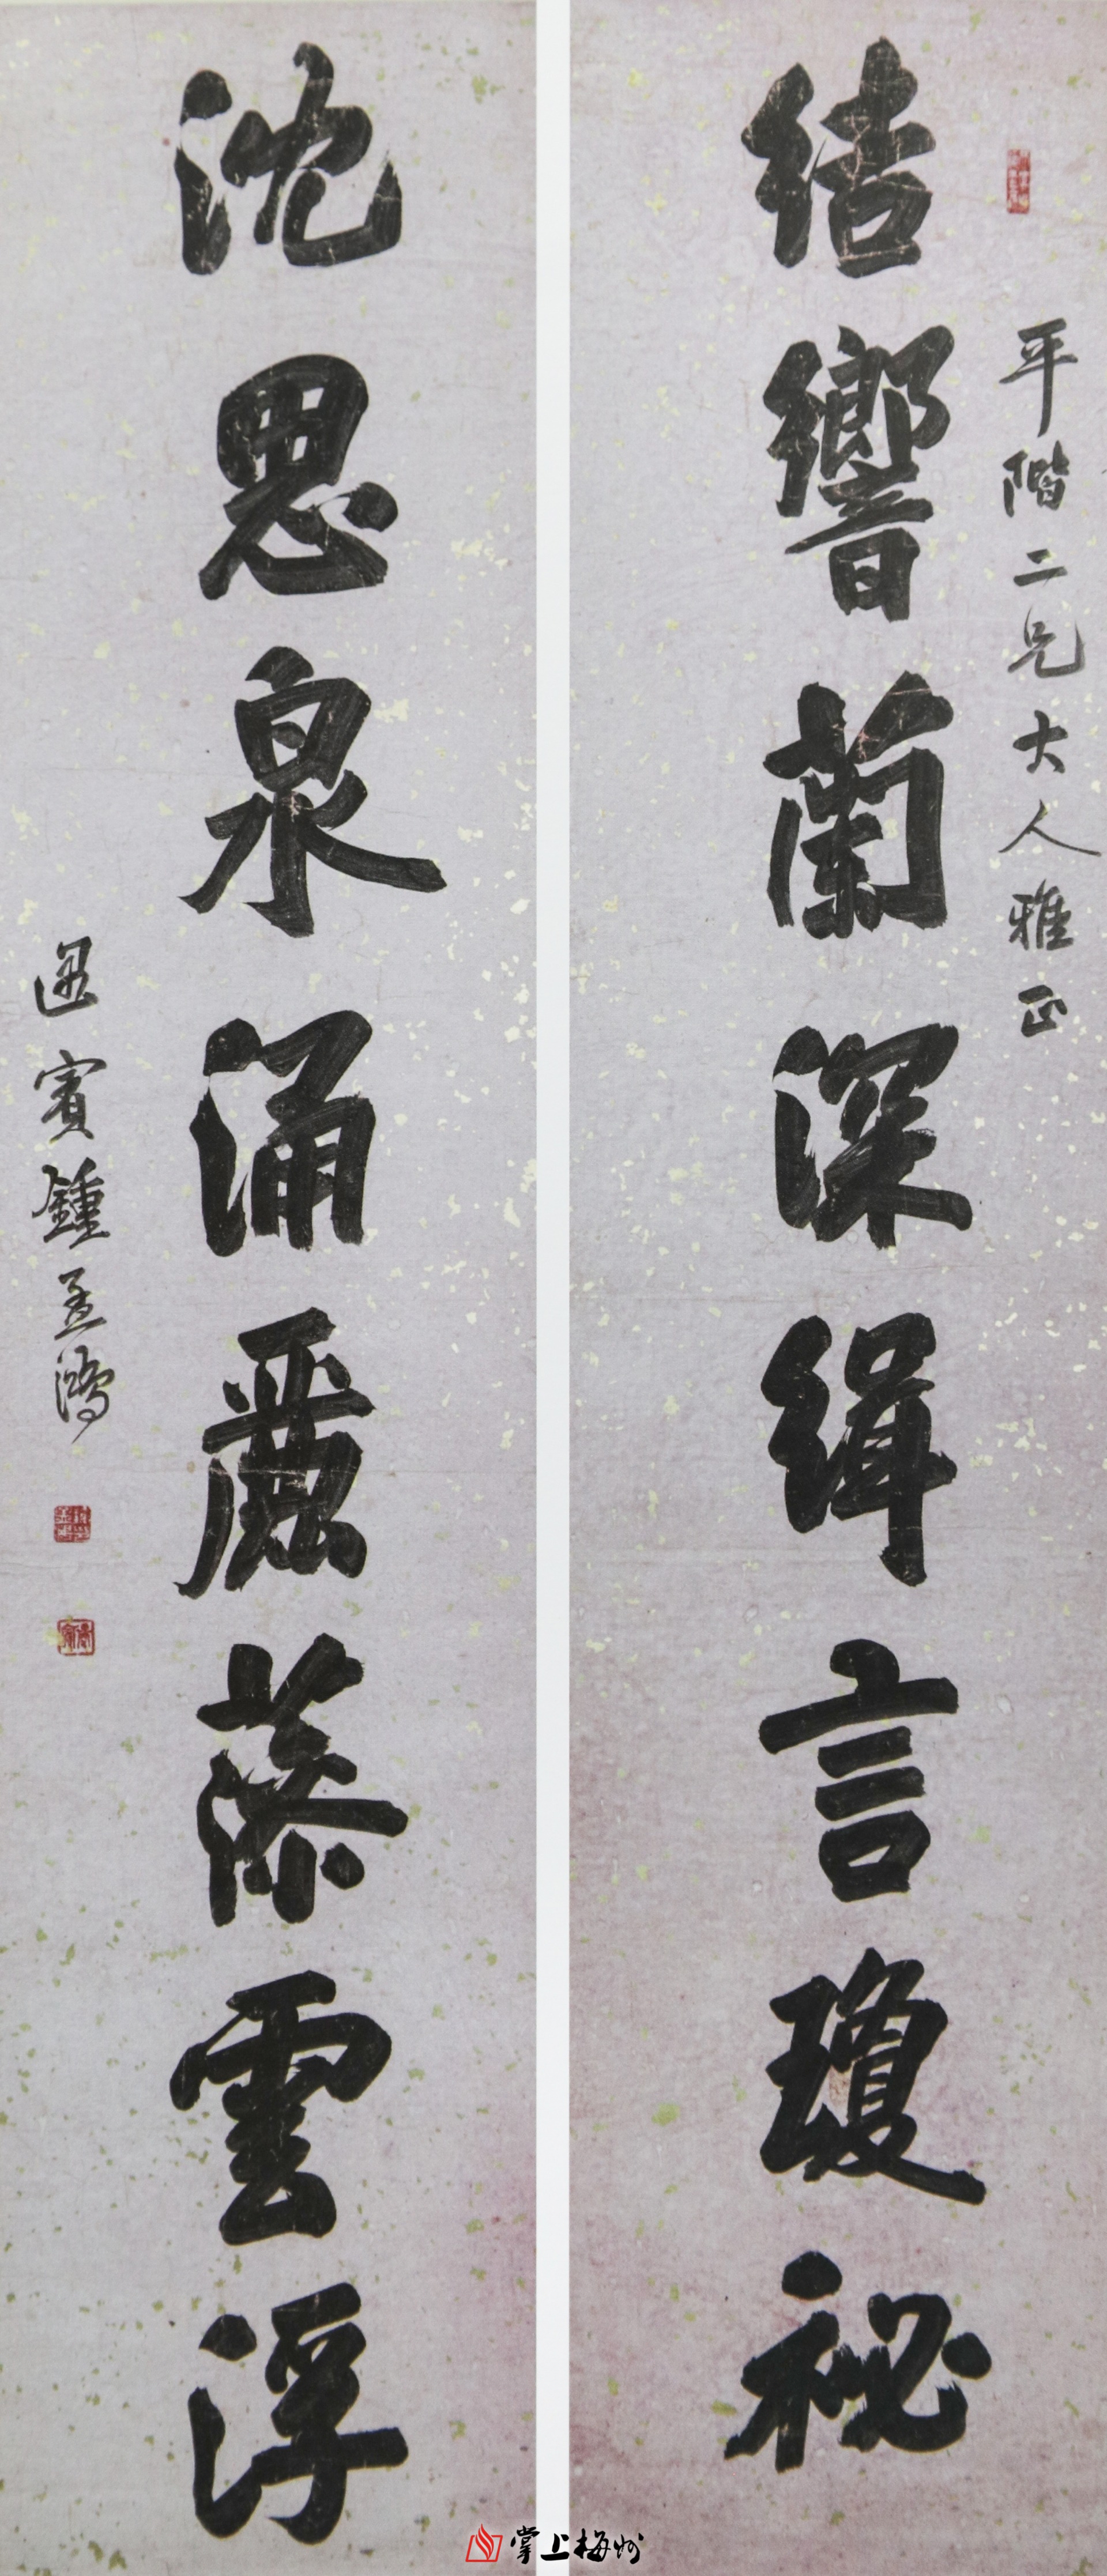 平階二兄大人雅正
結響蘭深緝言瓊祕
沈思泉涌麗藻雲浮
遇賓鍾孟鴻
掌上梅州